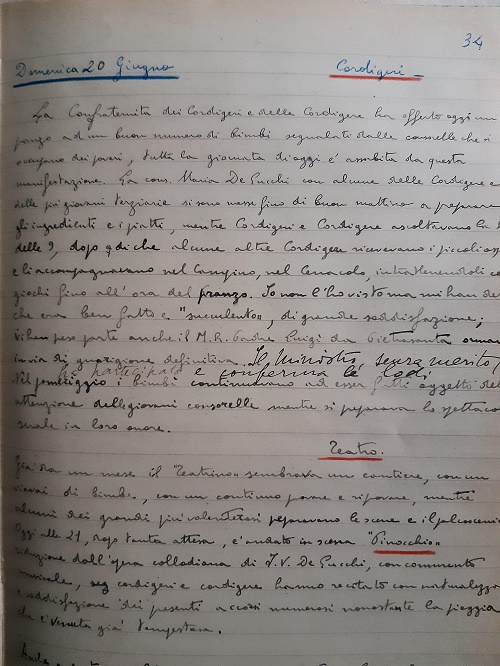 34
Domenica 20 Giugno Cordigeri
La Confraternita dei Cordigeri e delle Cordigere ha offerto oggi un
pranzo ad un buon numero di bimbi segnalati dalle consorelle che si
occupano dei poveri, tutta la giornata di oggi è assorbita da questa
manifestazione. La cons. Maria De Gucchi con alcune delle Cordigere e
delle più giovani terziarie si sono messe fino di buon mattino a preparare
gli ingredienti e i piatti, mentre Cordigeri e Cordigere ascoltavano la
delle 9, dopo di che alcune altre Cordigere ricevevano i piccoli
e li accompagnavano nel Campino, nel Cenacolo, intrattenendoli
giochi fino all'ora del pranzo. Io non l'ho visto ma mi han
che era ben fatto e "succulento", di grande soddisfazione;
parte anche il M. R. Padre Luigi da Pietrasanta ormai
in via di guarigione definitiva. Il ministro, senza merito,
ha partecipato e conferma le lodi
Nel pomeriggio i bimbi continuavano ad esser fatti oggetto
attenzione delle giovani consorelle mentre si preparava lo spettacolo
in loro onore.
Teatro.
Già da un mese il "Teatrino" sembrava un cantiere, con un
viavai di bimbi, con un continuo provare e riprovare, mentre
alcuni dei grandi più volenterosi preparavano le scene e il palcoscenico
Oggi alle 21, dopo tanta attesa, è andato in scena "Pinocchio"
riduzione dall'opera collodiana di De Gucchi, con commento
musicale, cordigeri e cordigere hanno recitato con naturalezza
e soddisfazione dei presenti accorsi numerosi nonostante la pioggia
che è venuta giù tempestosa.